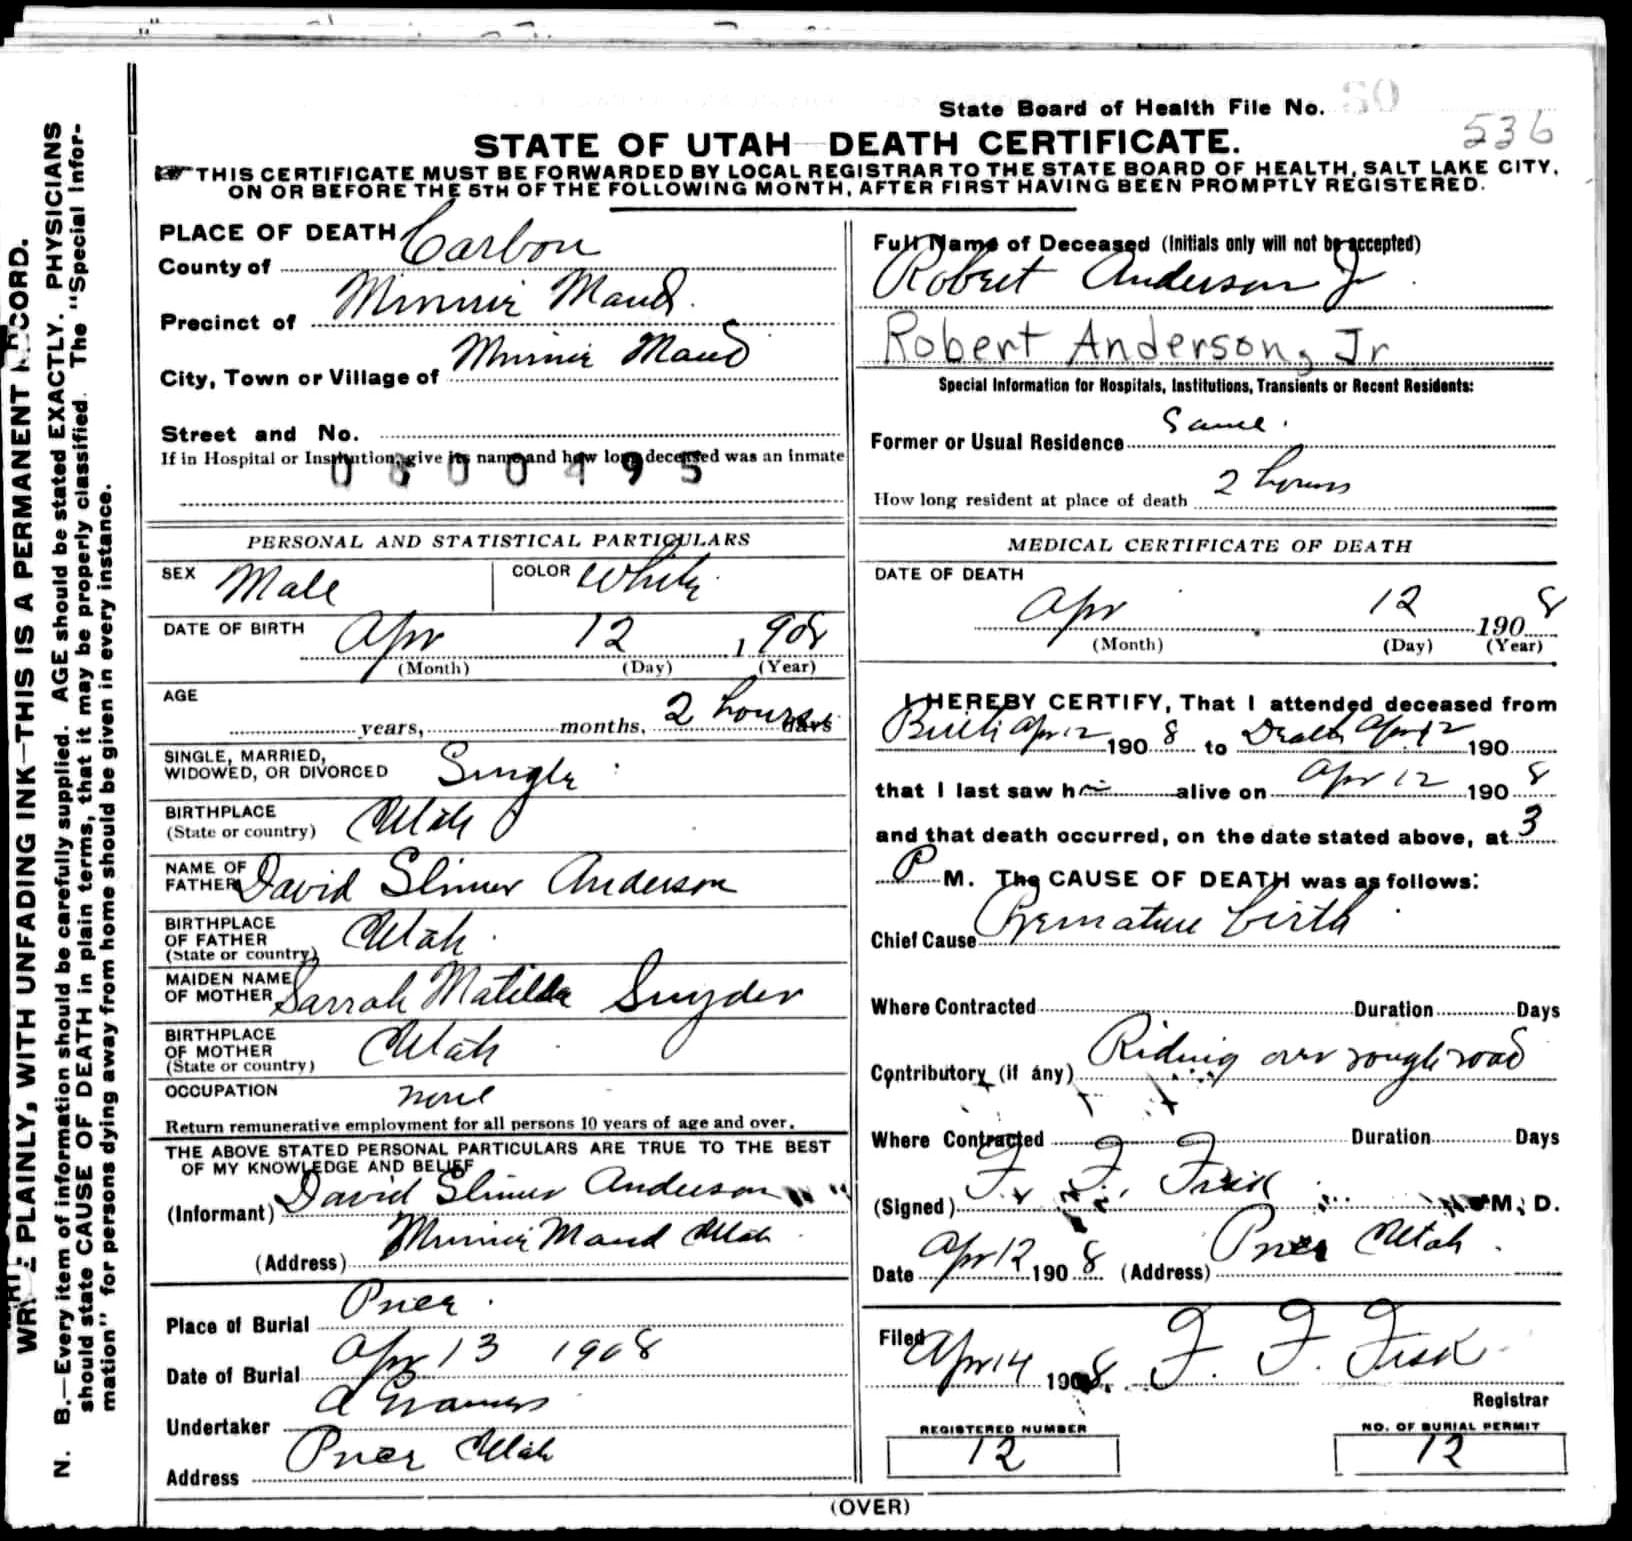 State Board of Health File No. 80
536
STATE OF UTAH—DEATH CERTIFICATE.
THIS CERTIFICATE MUST BE FORWARDED BY LOCAL REGISTRAR TO THE STATE BOARD OF HEALTH, SALT LAKE CITY,
ON OR BEFORE THE 5TH OF THE FOLLOWING MONTH, AFTER FIRST HAVING BEEN PROMPTLY REGISTERED.
WRITE PLAINLY, WITH UNFADING INK—THIS IS A PERMANENT RECORD.
N. B.—Every item of information should be carefully supplied. AGE should be stated EXACTLY. PHYSICIANS
should state CAUSE OF DEATH in plain terms, that it may be properly classified. The "Special Infor-
mation" for persons dying away from home should be given in every instance.
PLACE OF DEATH
County of Carbon
Precinct of Minnie Maud.
City, Town or Village of Minnie Maud
Street and No.
If in Hospital or Institution, give its name and how long deceased was an inmate
0600495
PERSONAL AND STATISTICAL PARTICULARS
SEX Male COLOR White.
DATE OF BIRTH Apr 12, 1908
(Month) (Day) (Year)
AGE years, months, 2 hours days
SINGLE, MARRIED,
WIDOWED, OR DIVORCED Single
BIRTHPLACE
(State or country) Utah
NAME OF
FATHER David Slimer Anderson
BIRTHPLACE
OF FATHER
(State or country) Utah.
MAIDEN NAME
OF MOTHER Sarrah Matilda Snyder
BIRTHPLACE
OF MOTHER
(State or country) Utah
OCCUPATION none
Return remunerative employment for all persons 10 years of age and over.
THE ABOVE STATED PERSONAL PARTICULARS ARE TRUE TO THE BEST
OF MY KNOWLEDGE AND BELIEF
(Informant) David Slimer Anderson
(Address) Minnie Maud Utah
Place of Burial Price.
Date of Burial Apr 13 1908
Undertaker
Address Price Utah
Full Name of Deceased (Initials only will not be accepted)
Robert Anderson Jr
Robert Anderson, Jr
Special Information for Hospitals, Institutions, Transients or Recent Residents:
Former or Usual Residence Same.
How long resident at place of death 2 hours
MEDICAL CERTIFICATE OF DEATH
DATE OF DEATH
Apr 12 1908
(Month) (Day) (Year)
I HEREBY CERTIFY, That I attended deceased from
Birth Apr 12 1908 to Death Apr 12 190
that I last saw him alive on Apr 12 1908
and that death occurred, on the date stated above, at 3
P M. The CAUSE OF DEATH was as follows:
Chief Cause Premature birth
Where Contracted Duration Days
Contributory (if any) Riding over rough road
Where Contracted Duration Days
(Signed) F. F. Fisk M. D.
Date Apr 12 1908 (Address) Price Utah.
Filed Apr 14 1908. F. F. Fisk
Registrar
REGISTERED NUMBER
12
NO. OF BURIAL PERMIT
12
(OVER)